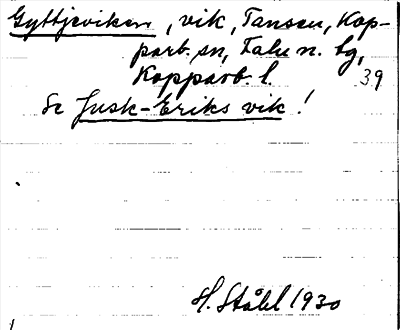 Gyttjeviken, vik, Tansen, Kop-
parb. sn, Falu n. bg,
Kopparb. l. 39
Se Jusk-Eriks vik!
H. Ståhl 1930